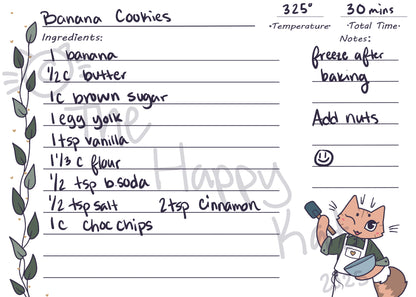 Banana Cookies
325°
·Temperature·
30 mins
·Total Time·
Ingredients:
1 banana
1/2 c butter
1c brown sugar
1 egg yolk
1 tsp vanilla
1 1/3 c flour
1/2 tsp b.soda
1/2 tsp salt 2tsp cinnamon
1c choc chips
Notes:
freeze after
baking
Add nuts
The
Happy